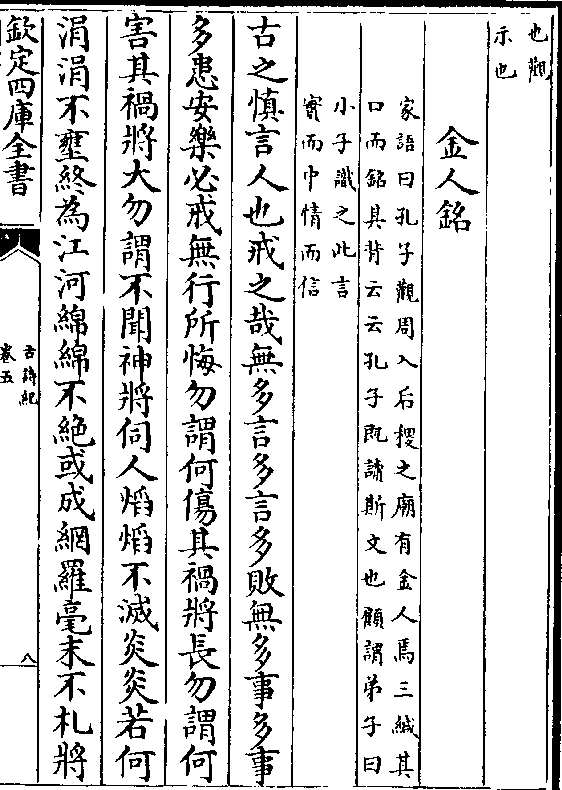 也觀
示也
金人銘
家語曰孔子觀周入后稷之廟有金人焉三緘其
口而銘其背云云孔子既讀斯文也顧謂弟子曰
小子識之此言
實而中情而信
古之慎言人也戒之哉無多言多言多敗無多事多事
多患安樂必戒無行所悔勿謂何傷其禍將長勿謂何
害其禍將大勿謂不聞神將伺人焰焰不滅炎炎若何
涓涓不壅終為江河綿綿不絕或成網羅毫末不札將
欽定四庫全書
古詩紀
卷五
八